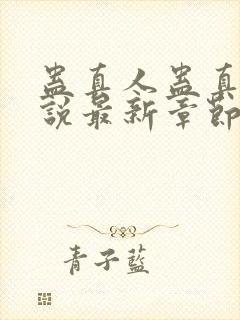 蛊真人蛊真
說最新章節
青子藍